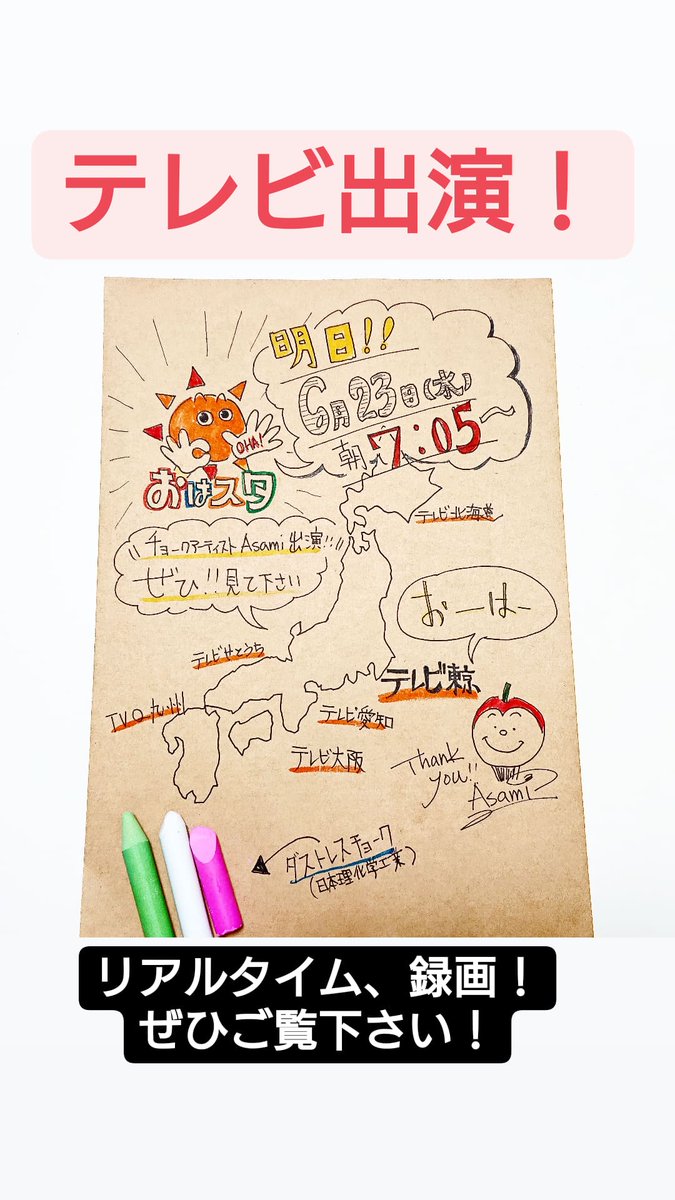 テレビ出演！
明日!!
6月23日(水)
朝7:05〜
OHA!
おはスタ
テレビ北海道
チョークアーティストAsami出演!!
ぜひ!!見て下さい
おーはー
テレビせとうち
テレビ東京
TVQ九州
テレビ愛知
テレビ大阪
Thank
you!!
Asami
ダストレスチョーク
(日本理化学工業)
リアルタイム、録画！
ぜひご覧下さい！